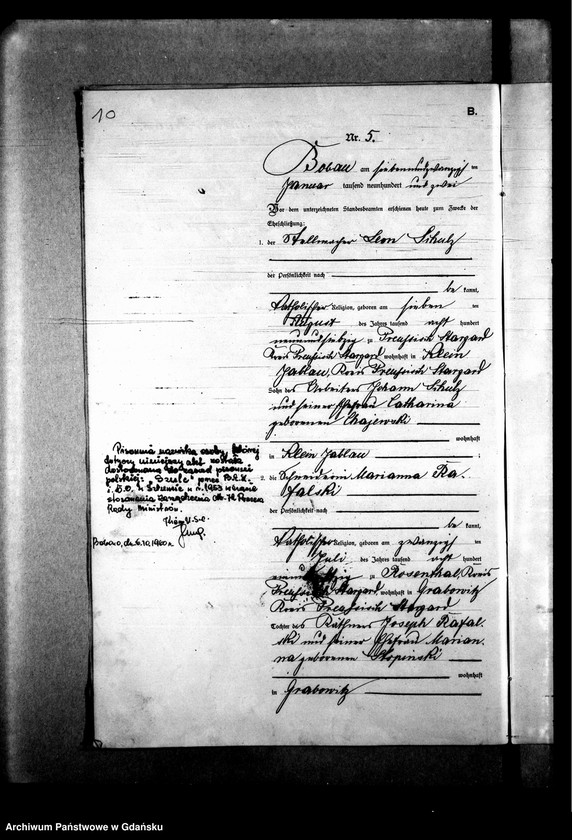 10
B.
Nr. 5.
Bobau am siebenundzwanzigsten
Januar tausend neunhundert und zwei
Vor dem unterzeichneten Standesbeamten erschienen heute zum Zwecke der
Eheschließung:
1. der Stellmacher Leon Schulz
der Persönlichkeit nach
be kannt,
katholischer Religion, geboren am sieben ten
August des Jahres tausend acht hundert
neunundsiebzig zu Preußisch Stargard
Kreis Preußisch Stargard, wohnhaft in Klein
Jablau, Kreis Preußisch Stargard
Sohn des Arbeiters Johann Schulz
und seiner Ehefrau Catharina
geborenen
wohnhaft
in Klein Jablau ;
2. die Schneiderin Marianna Ra-
falski
der Persönlichkeit nach
be kannt,
katholischer Religion, geboren am zwanzigsten
Juli des Jahres tausend acht hundert
zu Rosenthal, Kreis
Preußisch Stargard, wohnhaft in Grabowitz
Kreis Preußisch Stargard
Tochter des Käthners Joseph Rafal-
ski und seiner Ehefrau Marian-
na geborenen Stopinski
wohnhaft
in Grabowitz
Pisownia nazwiska osoby, której
dotyczy niniejszy akt została
dostosowana do zasad pisowni
polskiej: przez P.R.N.
w r. 1953 w trybie
zarządzenia Prezesa
Rady Ministrów.
Kier. U.S.C.
Bobowo, dn. 6.10.1960 r.
Archiwum Państwowe w Gdańsku